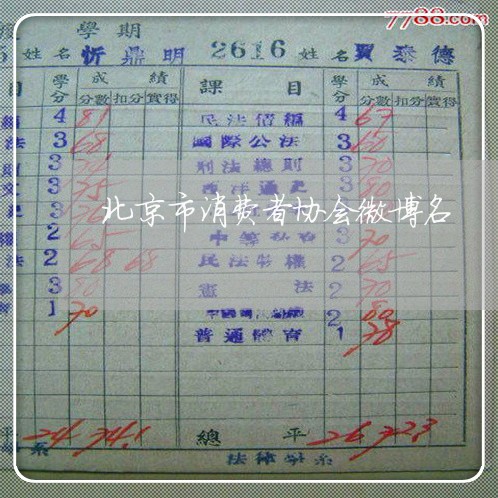 7788.com
學期
姓名 忻鼎明 2616 姓名 賈泰德
目 學分 成績 課目 學分 成績
分數 扣分 實得 分數 扣分 實得
4 81 民法債編 4 67
法 3 68 國際公法 3 60
3 刑法總則 3 70
3 75 西洋通史 3 80
北京市消费者协会微博名
2 65 3 70
法 2 68 68 民法物權 2 65
3 80 憲法 2 70
1 70 2 80
普通體育 1 78
平 24 74.1 總平 26 72.3
系 法律學系